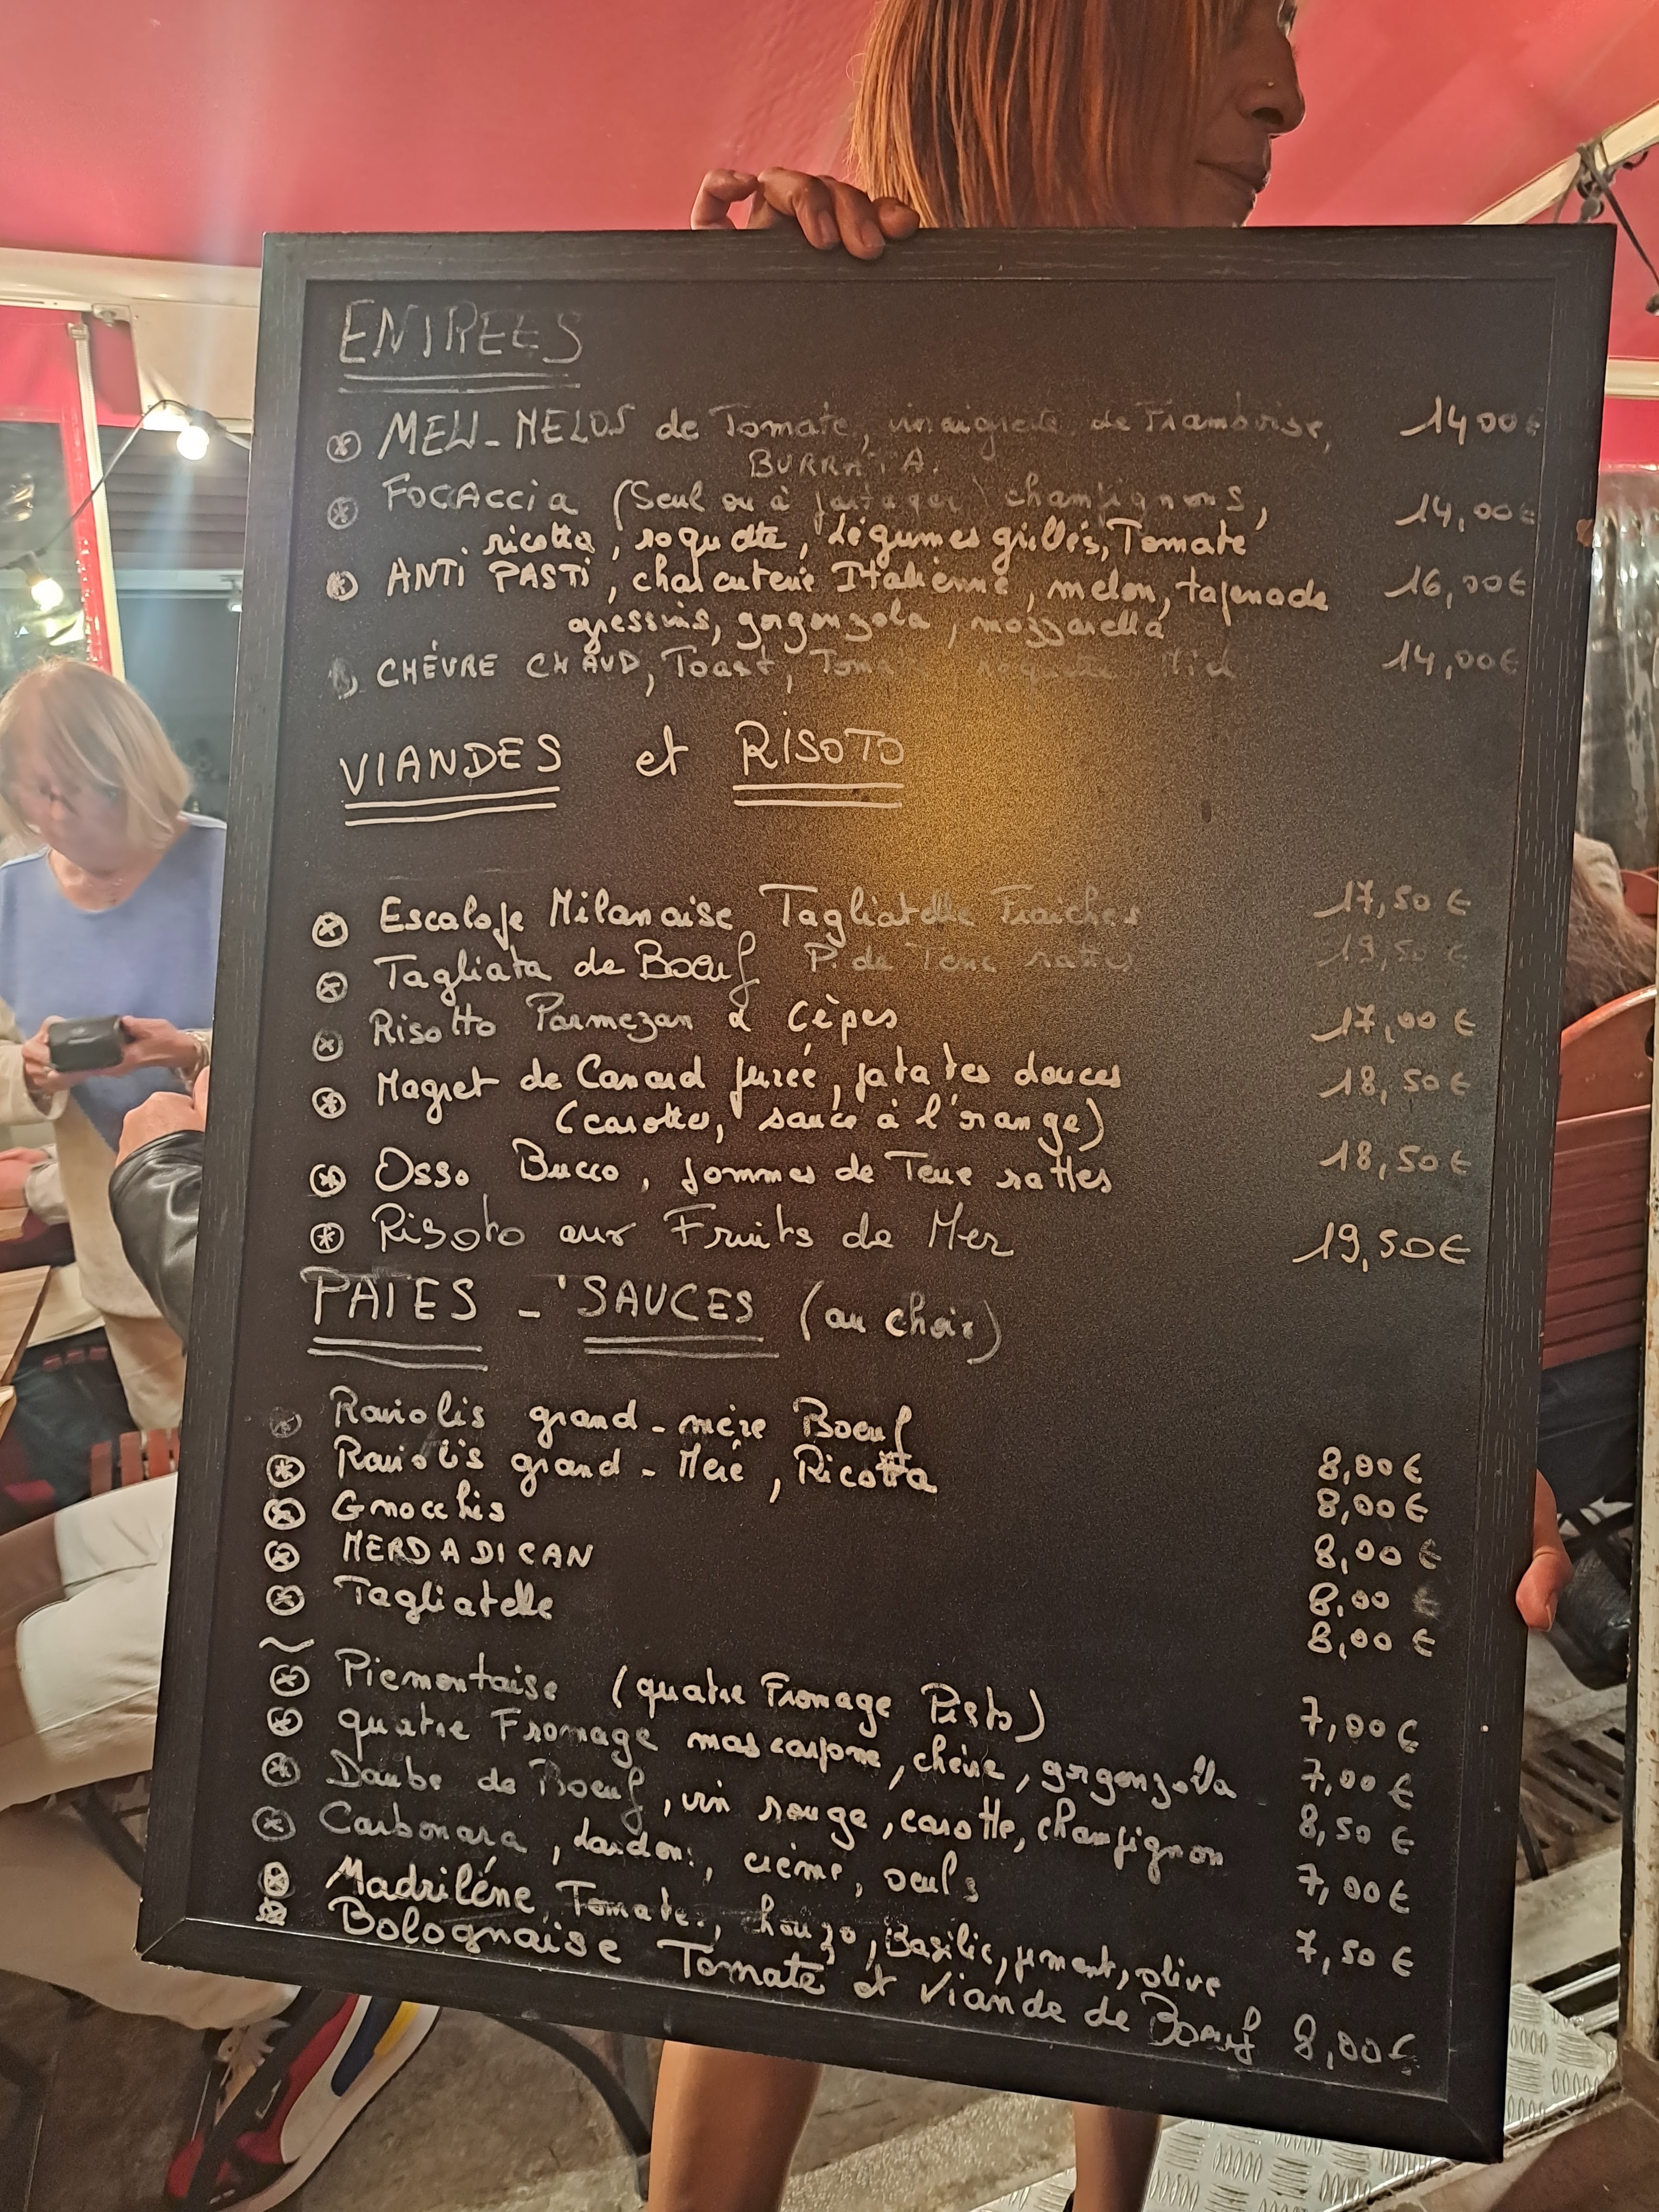 ENTREES
MELI-MELOS de Tomate, vinaigrette de Framboise, 14,00€
BURRATA.
FOCACCIA (Seul ou à partager) champignons, 14,00€
ricotta, roquette, légumes grillés, Tomate
ANTI PASTI, charcuterie Italienne, melon, tapenade 16,00€
gressins, gorgonzola, mozzarella
CHÉVRE CHAUD, Toast, Tomate roquette Miel 14,00€
VIANDES et RISOTO
Escalope Milanaise Tagliatelle Fraiches 17,50€
Tagliata de Boeuf P. de Terre rattes 19,50€
Risotto Parmezan & Cèpes 17,00€
Magret de Canard purée, patates douces 18,50€
(carottes, sauce à l'orange)
Osso Bucco, pommes de Terre rattes 18,50€
Risoto aux Fruits de Mer 19,50€
PATES - SAUCES (au choix)
Raviolis grand-mère Boeuf 8,00€
Raviolis grand-Mère, Ricotta 8,00€
Gnocchis 8,00€
MERDADICAN 8,00€
Tagliatelle 8,00€
Piemontaise (quatre Fromage Pesto) 7,00€
quatre Fromage mascarpone, chèvre, gorgonzolla 7,00€
Daube de Boeuf, vin rouge, carotte, champignon 8,50€
Carbonara, lardons, crème, oeufs 7,00€
Madriléne, Tomate, chorizo, Basilic, piment, olive 7,50€
Bolognaise Tomate et Viande de Boeuf 8,00€